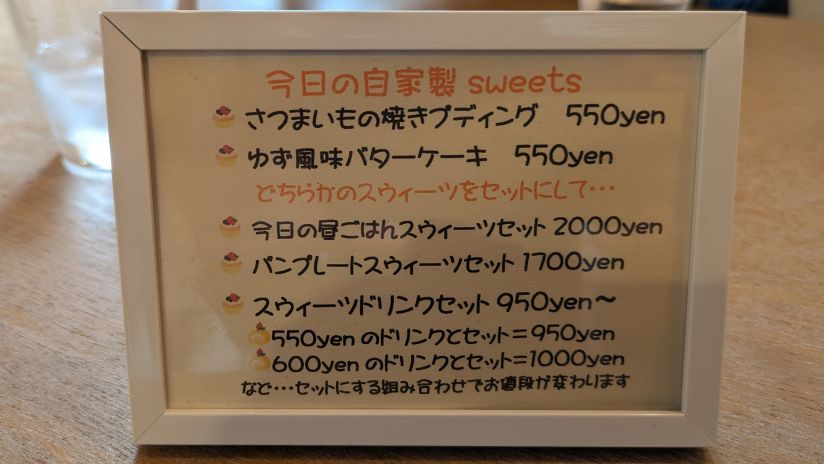 今日の自家製 sweets
さつまいもの焼きプディング 550yen
ゆず風味バターケーキ 550yen
どちらかのスウィーツをセットにして・・・
今日の昼ごはんスウィーツセット 2000yen
パンプレートスウィーツセット 1700yen
スウィーツドリンクセット 950yen～
550yen のドリンクとセット＝950yen
600yen のドリンクとセット＝1000yen
など・・・セットにする組み合わせでお値段が変わります